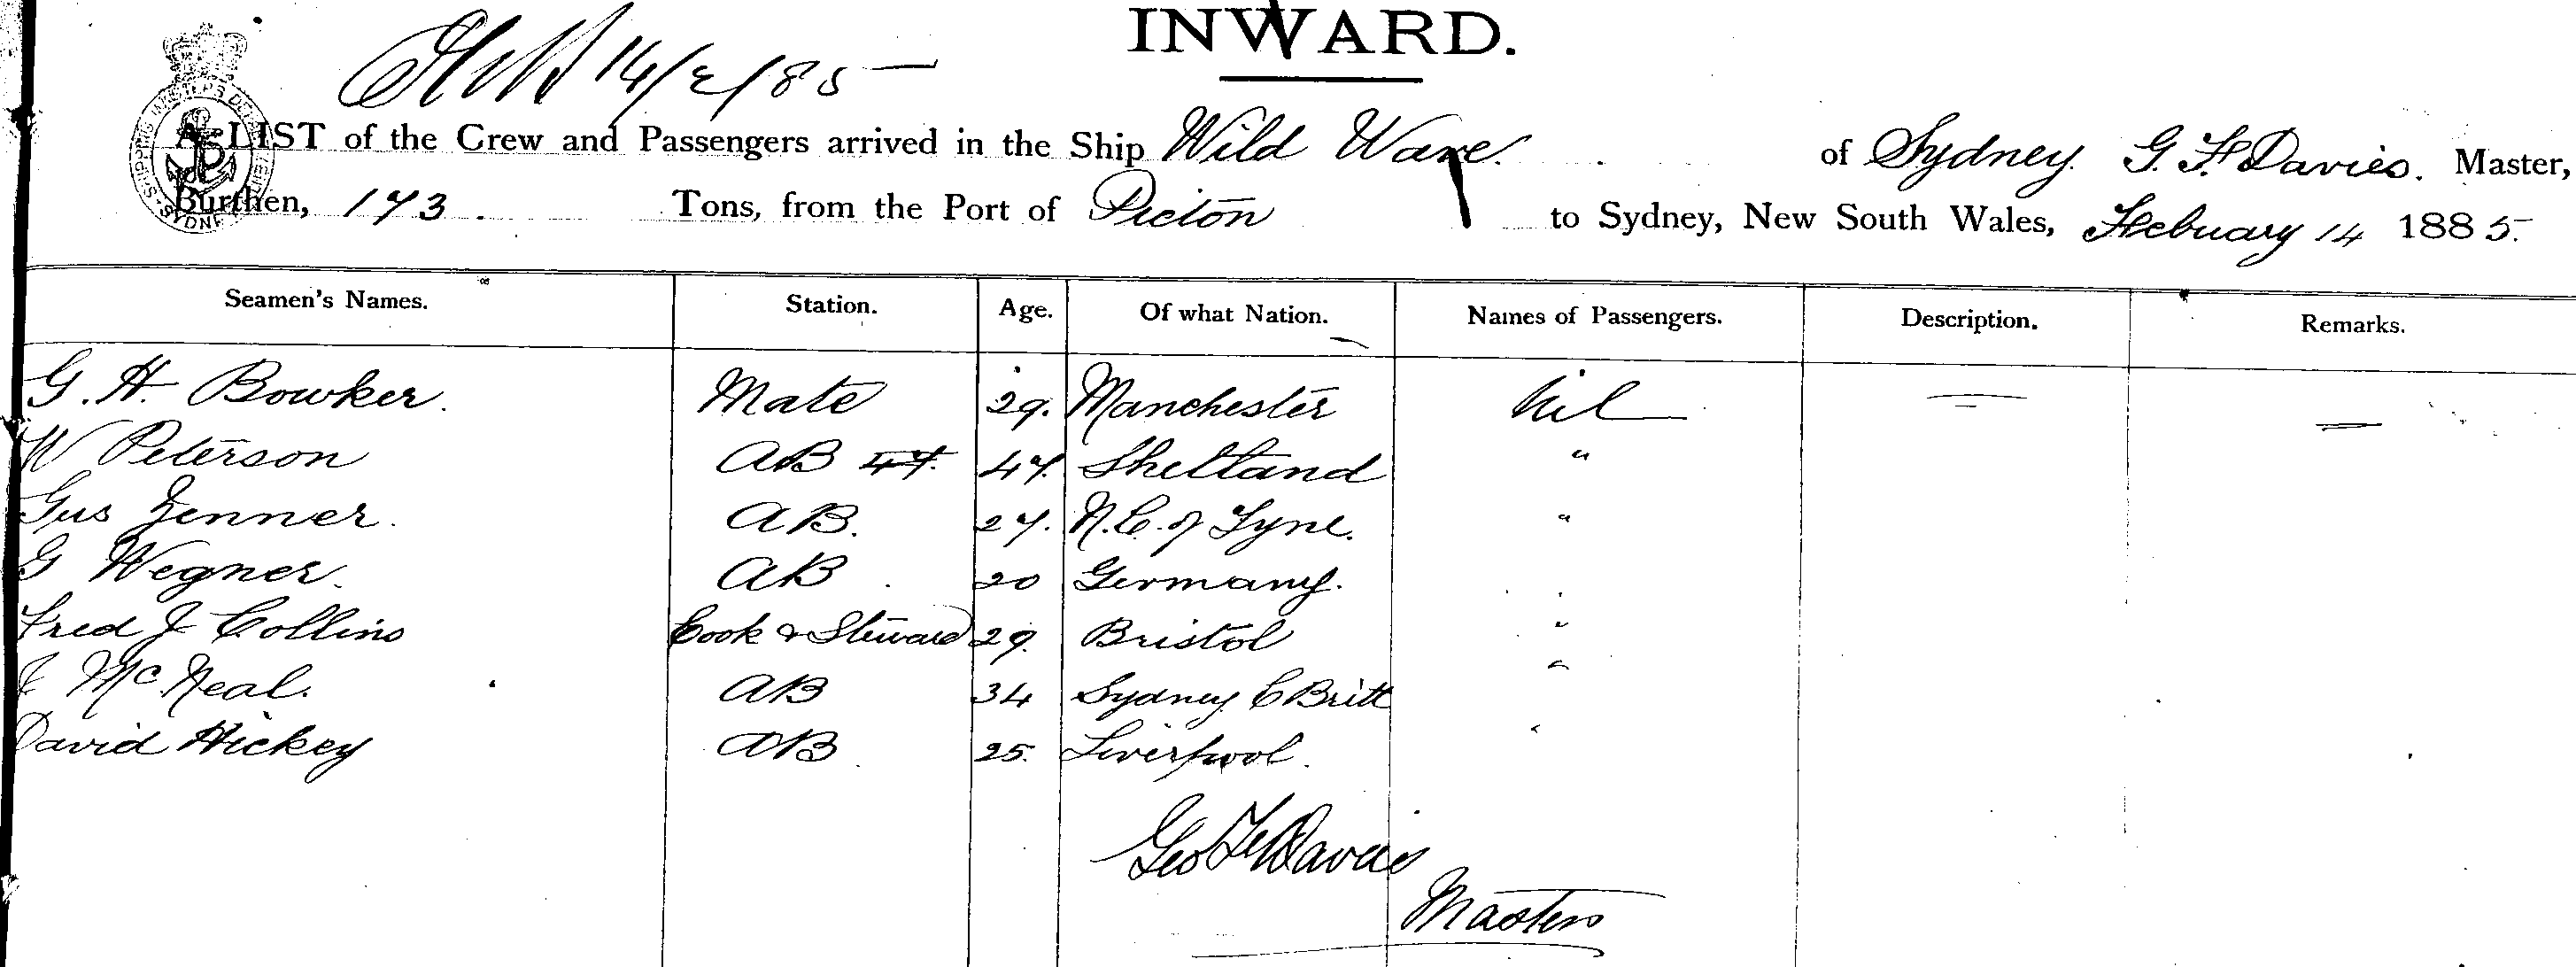 INWARD.
14/2/85
A LIST of the Crew and Passengers arrived in the Ship Wild Wave. of Sydney. G. F. Davies. Master,
Burthen, 173. Tons, from the Port of Picton to Sydney, New South Wales, Febuary 14 1885.
SHIPPING MASTER'S DEPARTMENT SYDNEY
Seamen's Names. Station. Age. Of what Nation. Names of Passengers. Description. Remarks.
G. H. Bowker. Mate 29. Manchester Nil
W Peterson AB 47. 47. Sheltand "
Gus Zenner. AB. 27. N.C. of Tyne. "
G Wegner. AB 20 Germany. "
Fred J Collins Cook & Steward 29. Bristol "
J McNeal. AB 34 Sydney C Britt "
David Hickey AB 25. Liverpool. "
Geo F Davies
Master